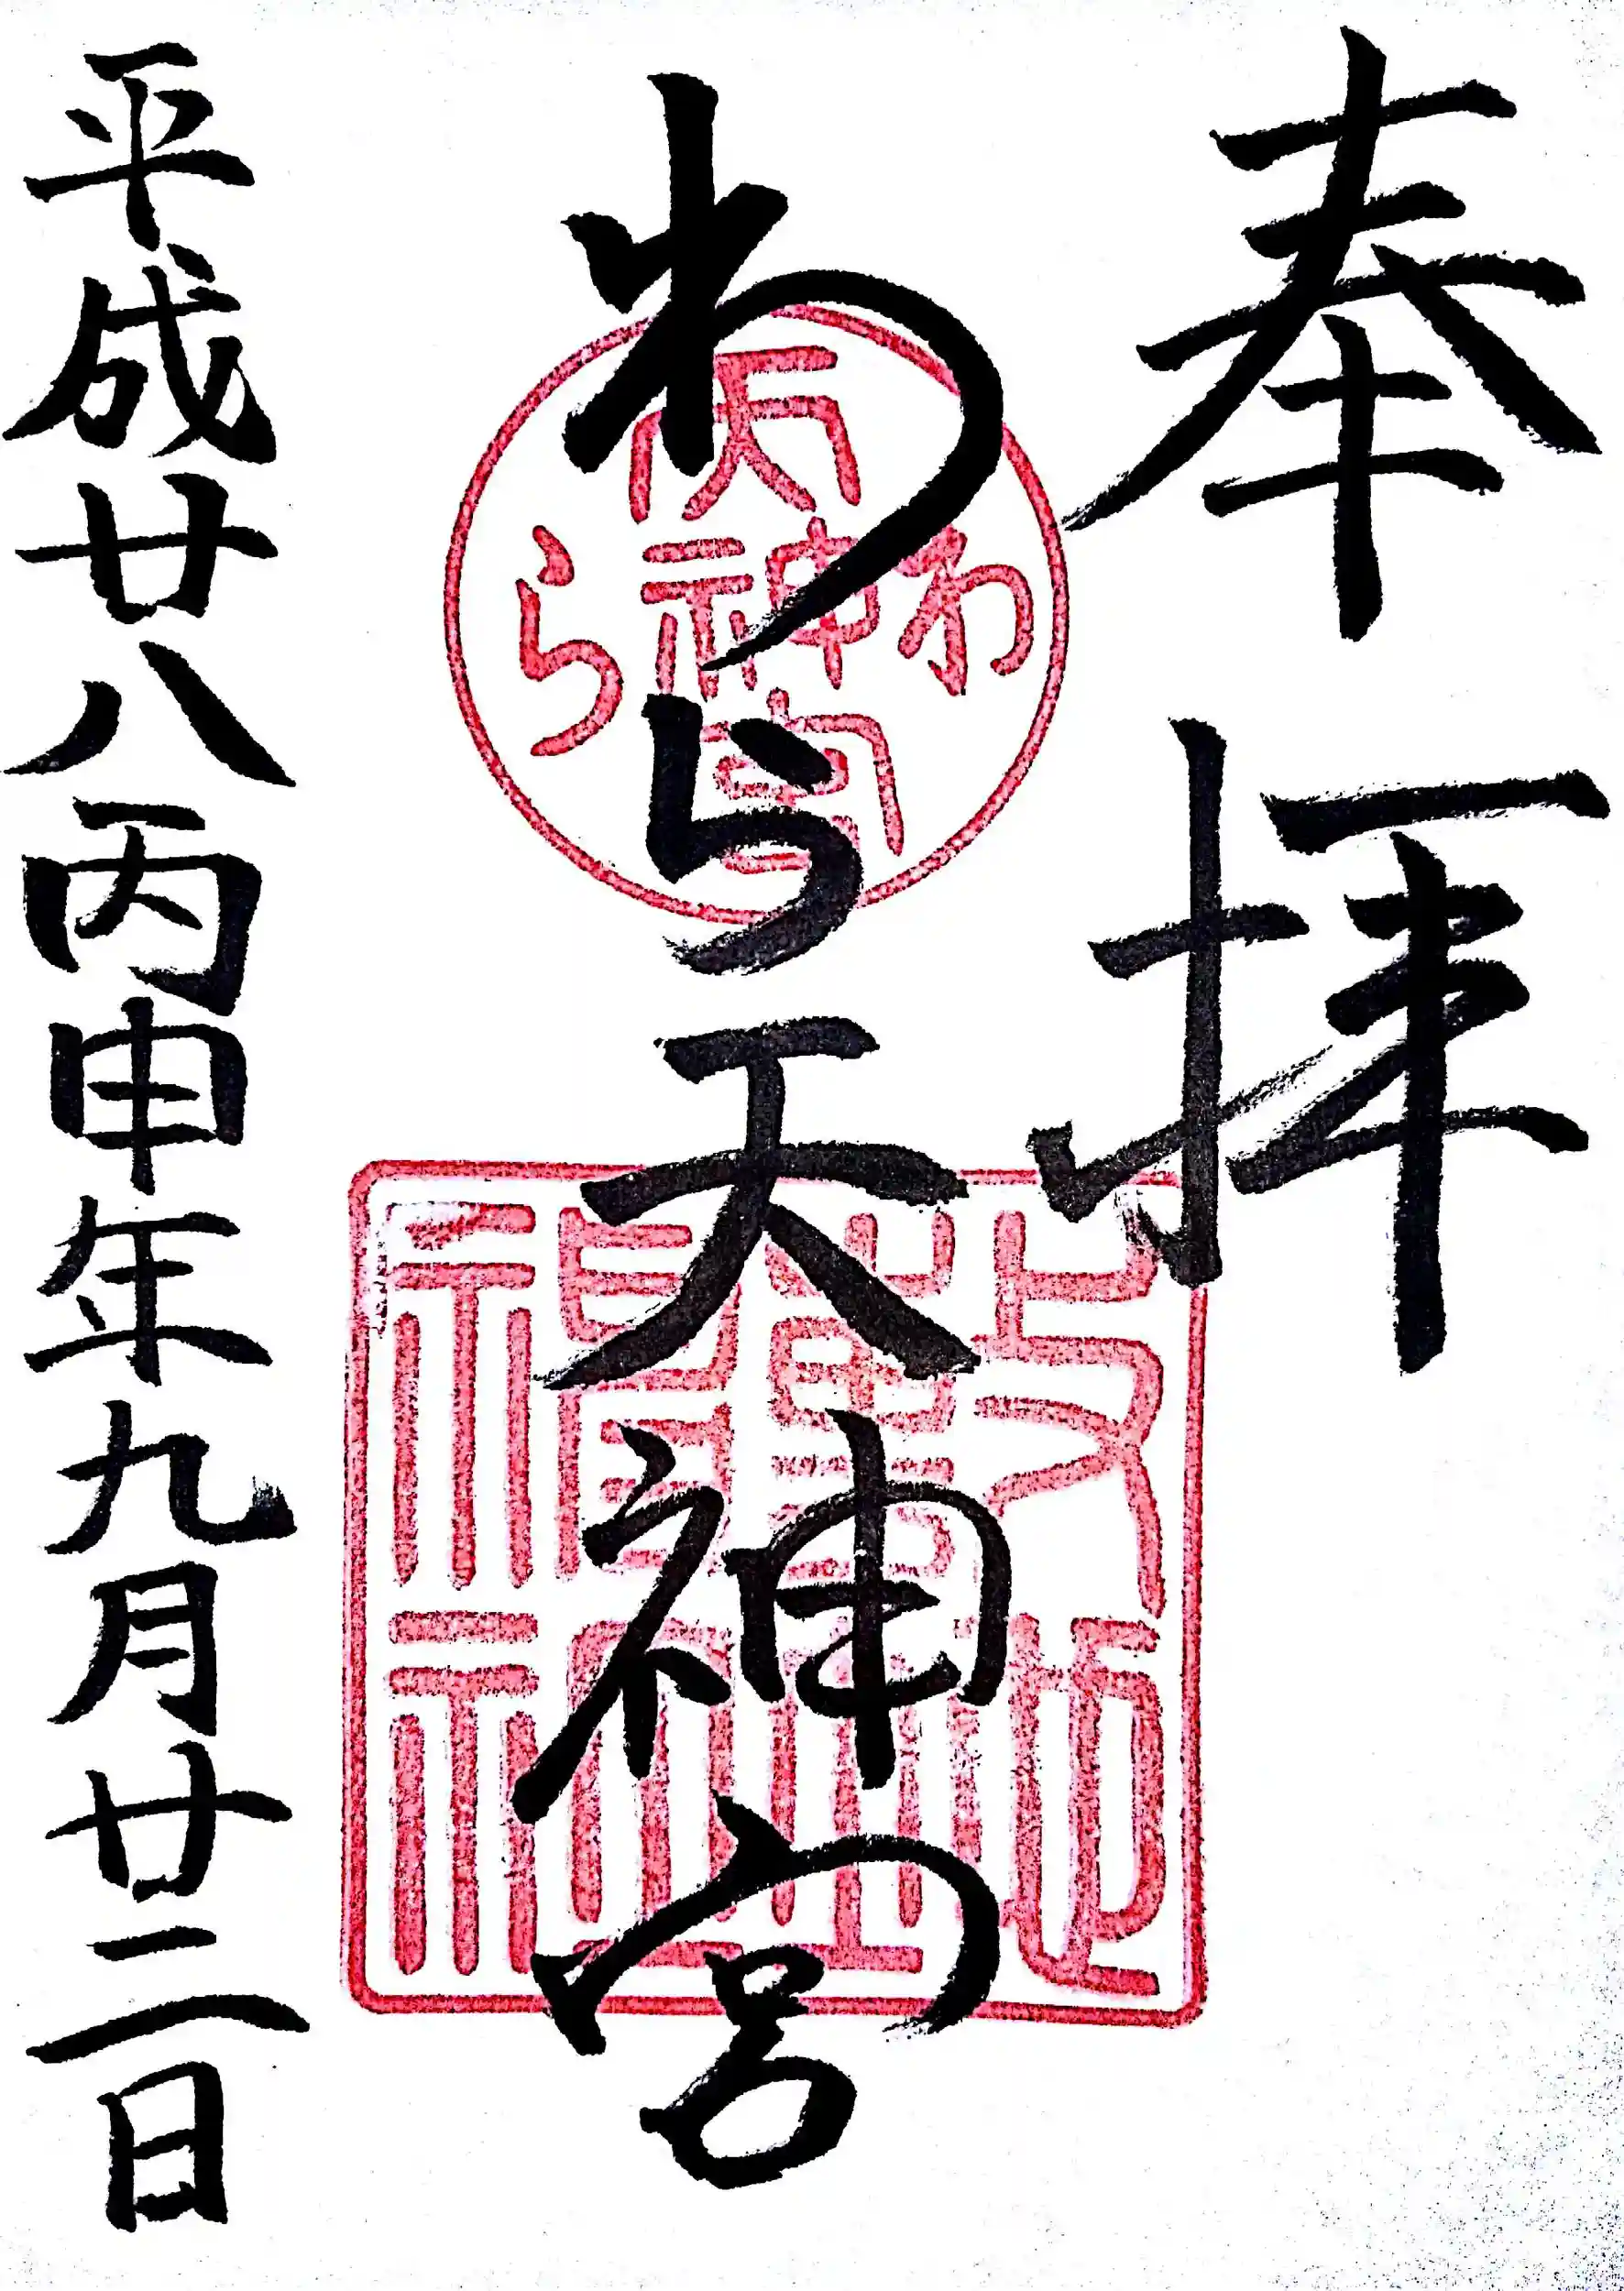 奉拝
わら天神宮
平成廿八丙申年九月廿二日
わら天神宮
敷地
神社